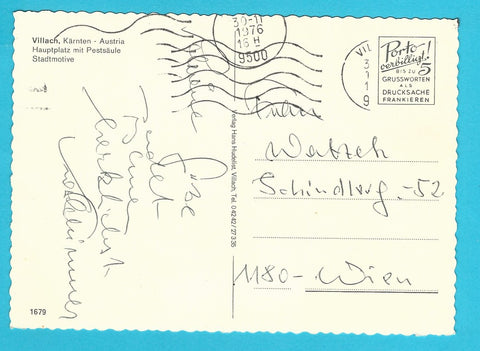 Villach, Kärnten - Austria
Hauptplatz mit Pestsäule
Stadtmotive
30-11
1976
16 H
9500
VIL
Porto
verbilligt!
BIS ZU 5
GRUSSWORTEN
ALS
DRUCKSACHE
FRANKIEREN
Grüße
sendet
herzlichst
Watzek
Schindlerg. -52
1180 - Wien
Verlag Hans Hudelist, Villach, Tel. 04242/27335
1679